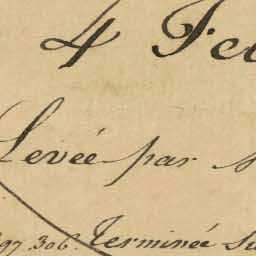 4 Fe
Levée par
97 306. Terminée